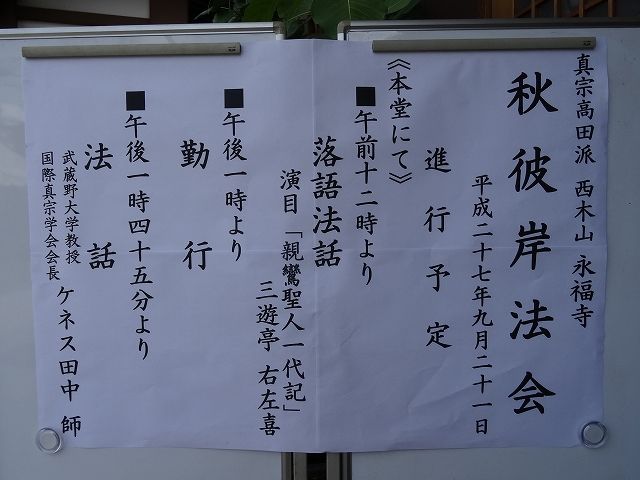 真宗高田派 西木山 永福寺
秋彼岸法会
平成二十七年九月二十一日
進行予定
《本堂にて》
■午前十二時より
落語法話
演目「親鸞聖人一代記」
三遊亭 右左喜
■午後一時より
勤行
■午後一時四十五分より
法話
武蔵野大学教授
国際真宗学会会長
ケネス田中 師